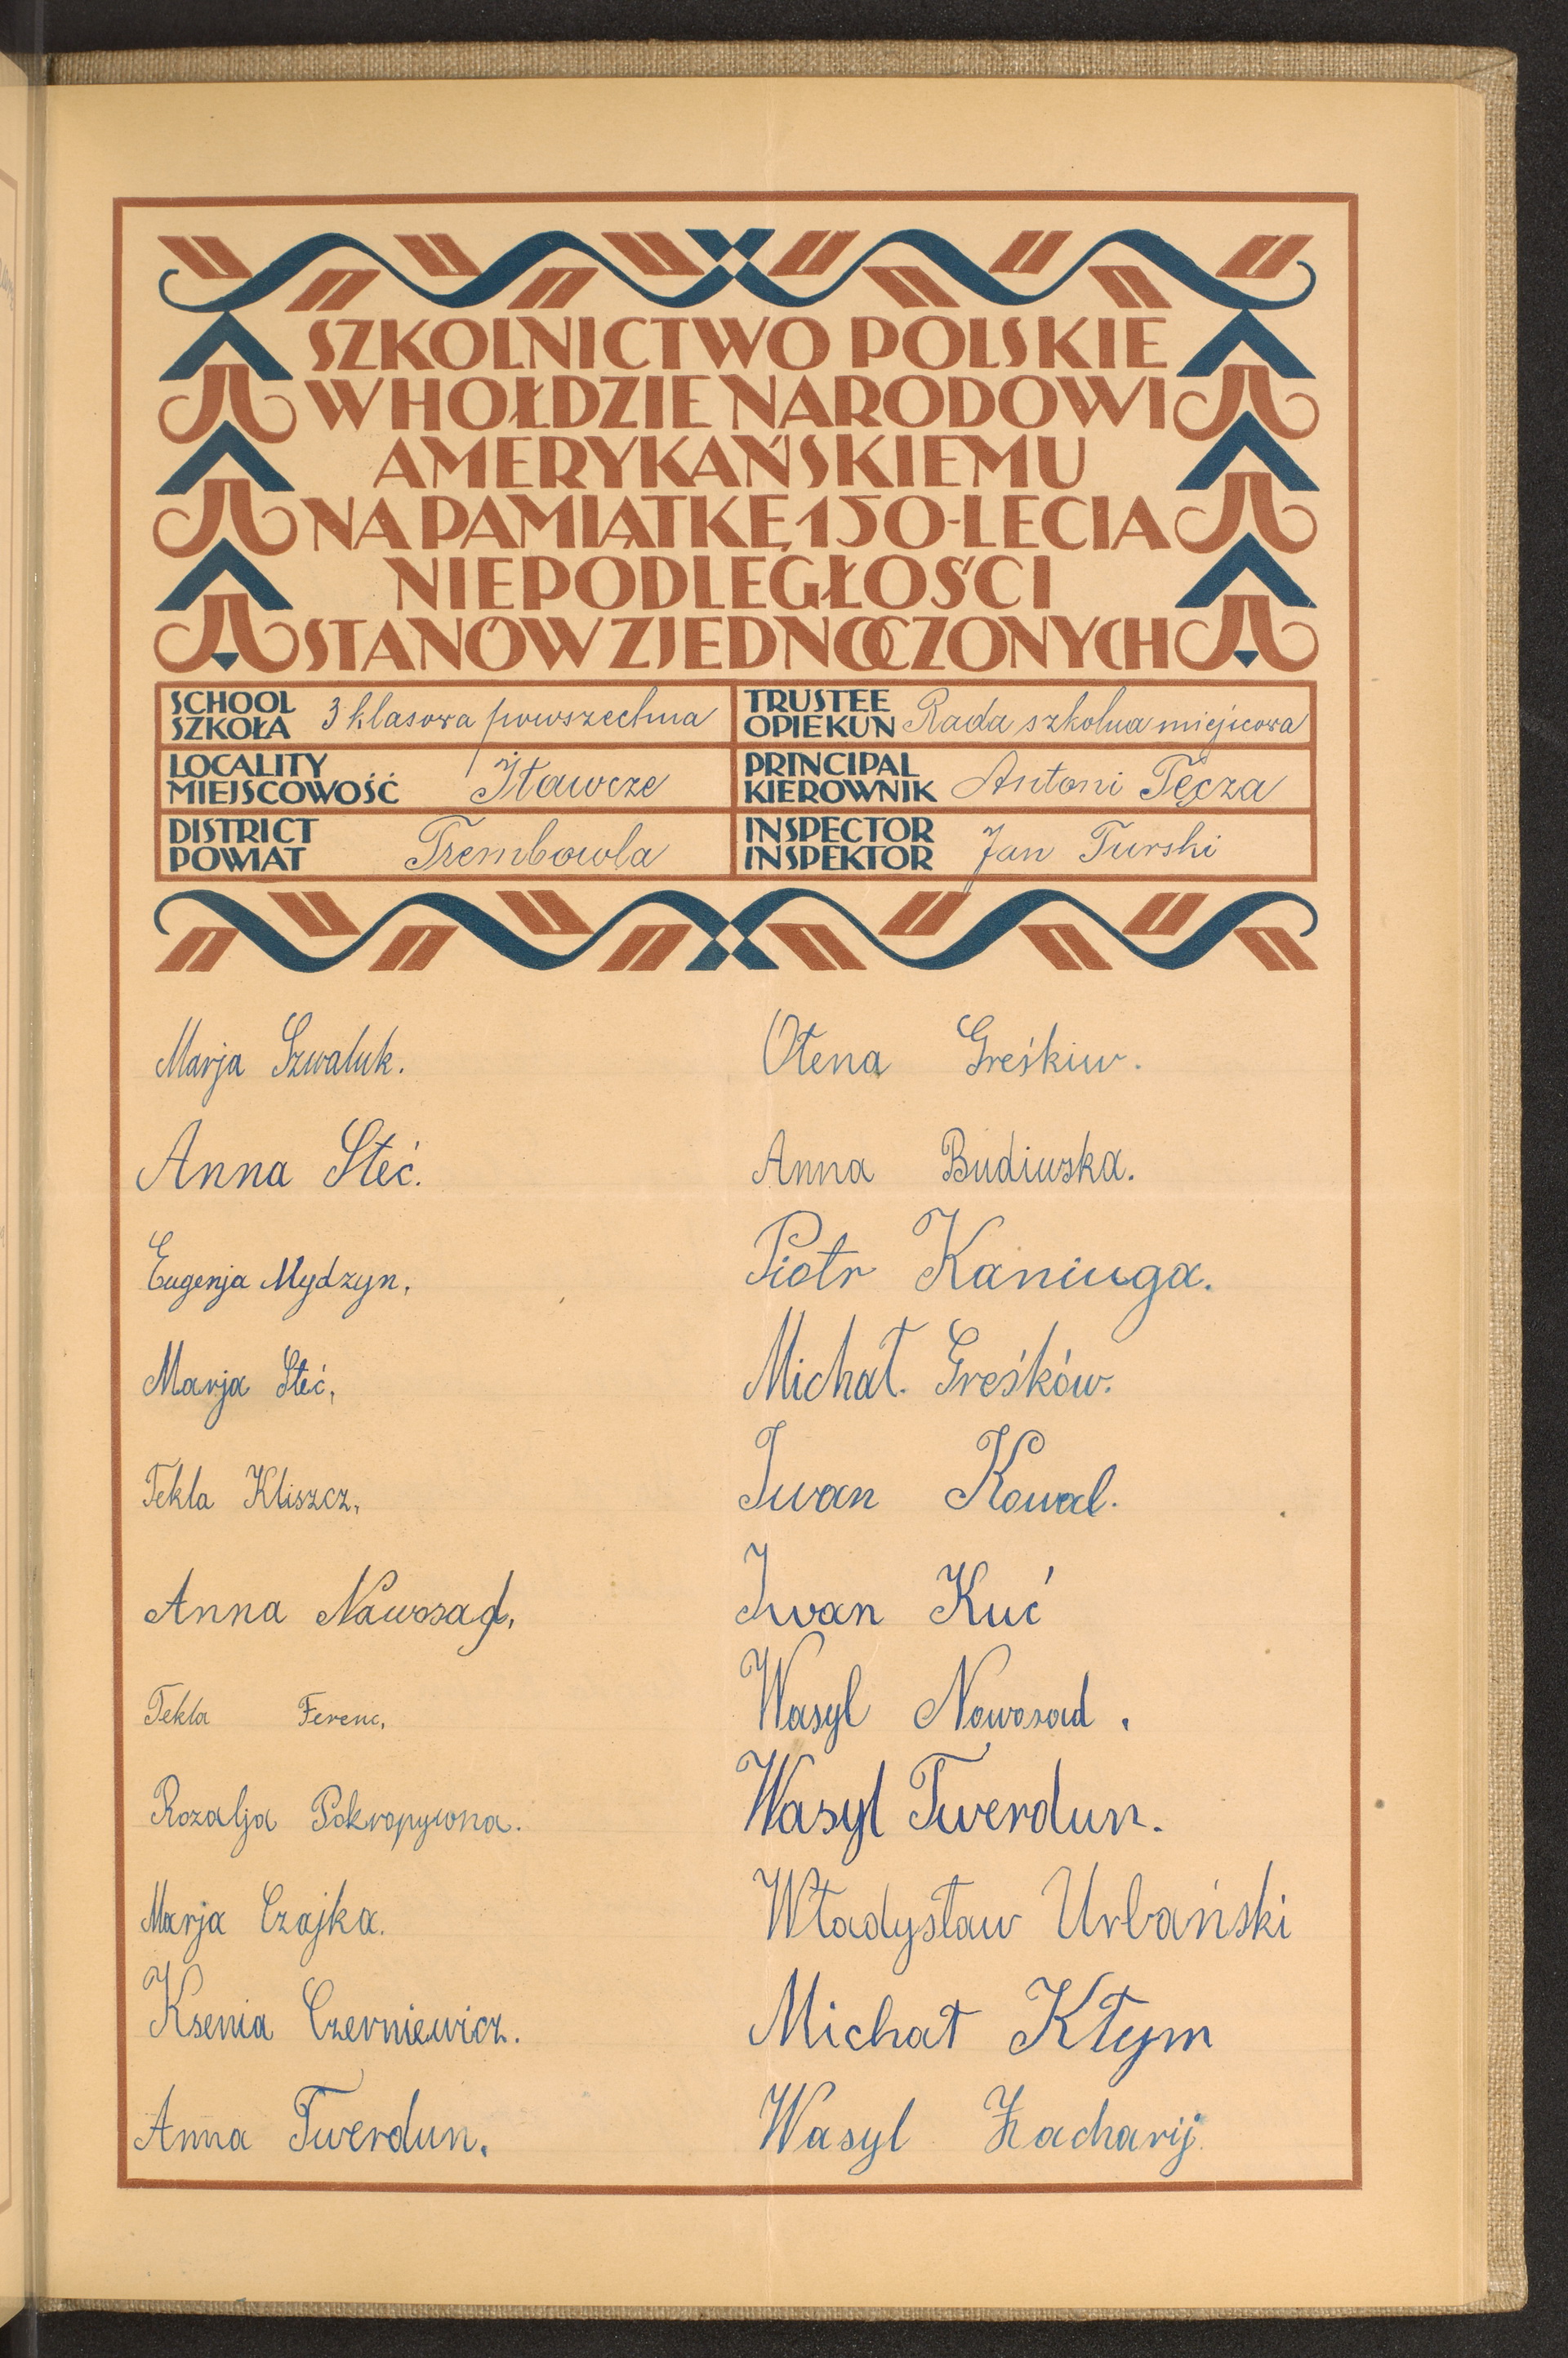 SZKOLNICTWO POLSKIE
W HOŁDZIE NARODOWI
AMERYKAŃSKIEMU
NA PAMIĄTKĘ 150-LECIA
NIEPODLEGŁOŚCI
STANÓW ZJEDNOCZONYCH
SCHOOL
SZKOŁA 3 klasowa powszechna
TRUSTEE
OPIEKUN Rada szkolna miejscowa
LOCALITY
MIEJSCOWOŚĆ Iławcze
PRINCIPAL
KIEROWNIK Antoni Tęcza
DISTRICT
POWIAT Trembowla
INSPECTOR
INSPEKTOR Jan Turski
Marja Szwaluk.
Anna Steć.
Eugenja Mydzyn,
Marja Steć,
Tekla Kliszcz,
Anna Nawosad,
Tekla Ferenc,
Rozalja Pokropywna.
Marja Czajka.
Ksenia Czerniewicz.
Anna Twerdun.
Ołena Greśkiw.
Anna Budiwska.
Piotr Kaniuga.
Michał. Greśków.
Iwan Kowal.
Iwan Kuć
Wasyl Nowosad.
Wasyl Twerdun.
Władysław Urbański
Michał Kłym
Wasyl Zacharij.